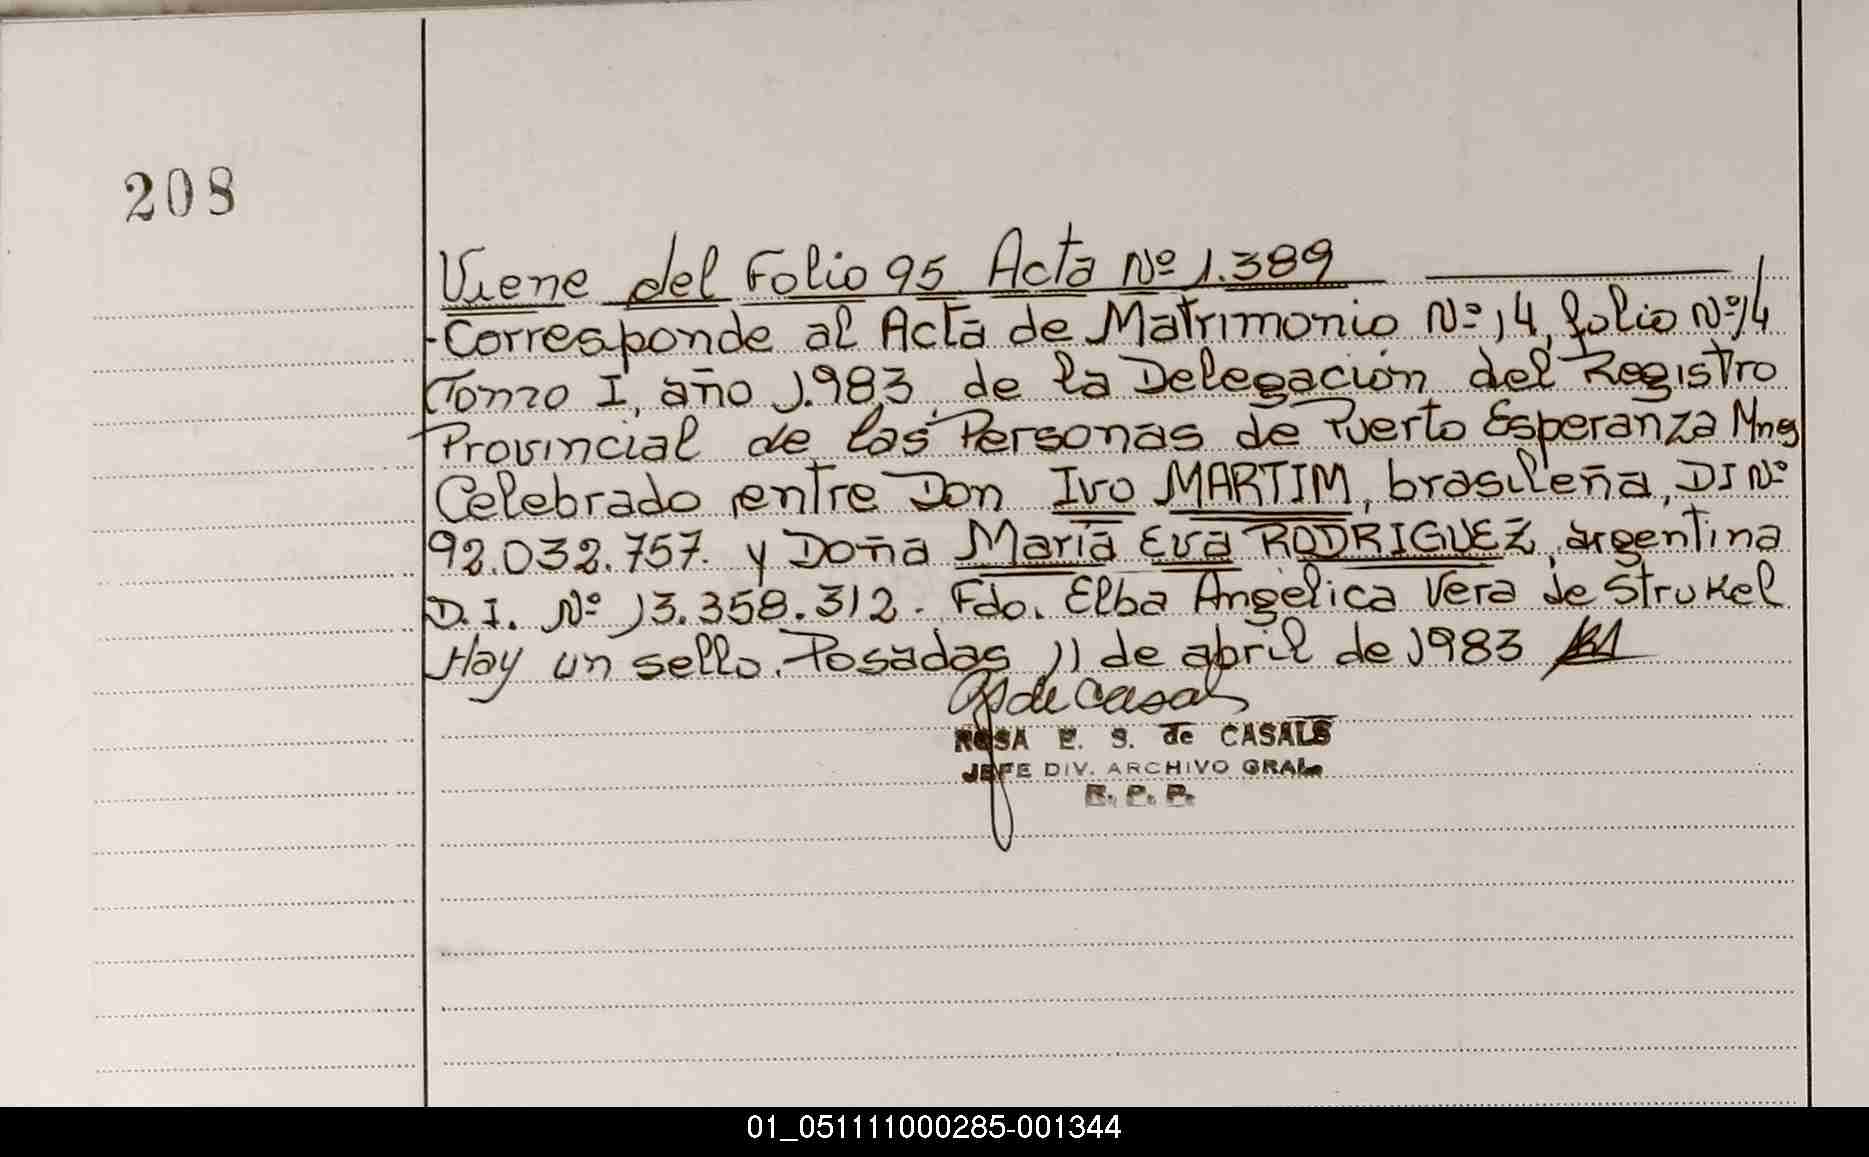 208
Viene del Folio 95 Acta Nº 1.389
-Corresponde al Acta de Matrimonio Nº 14, folio Nº 14
Tomo I, año 1.983, de la Delegación del Registro
Provincial de las Personas de Puerto Esperanza Mnes
Celebrado entre Don Ivo MARTIM, brasileña, DI Nº
92.032.757. y Doña María Eva RODRIGUEZ, argentina
D.I. Nº 13.358.312. Fdo. Elba Angélica Vera de Strukel
Hay un sello. Posadas 11 de abril de 1983
de Casals
ROSA E. S. de CASALS
JEFE DIV. ARCHIVO GRAL.
R. P. P.
01_051111000285-001344